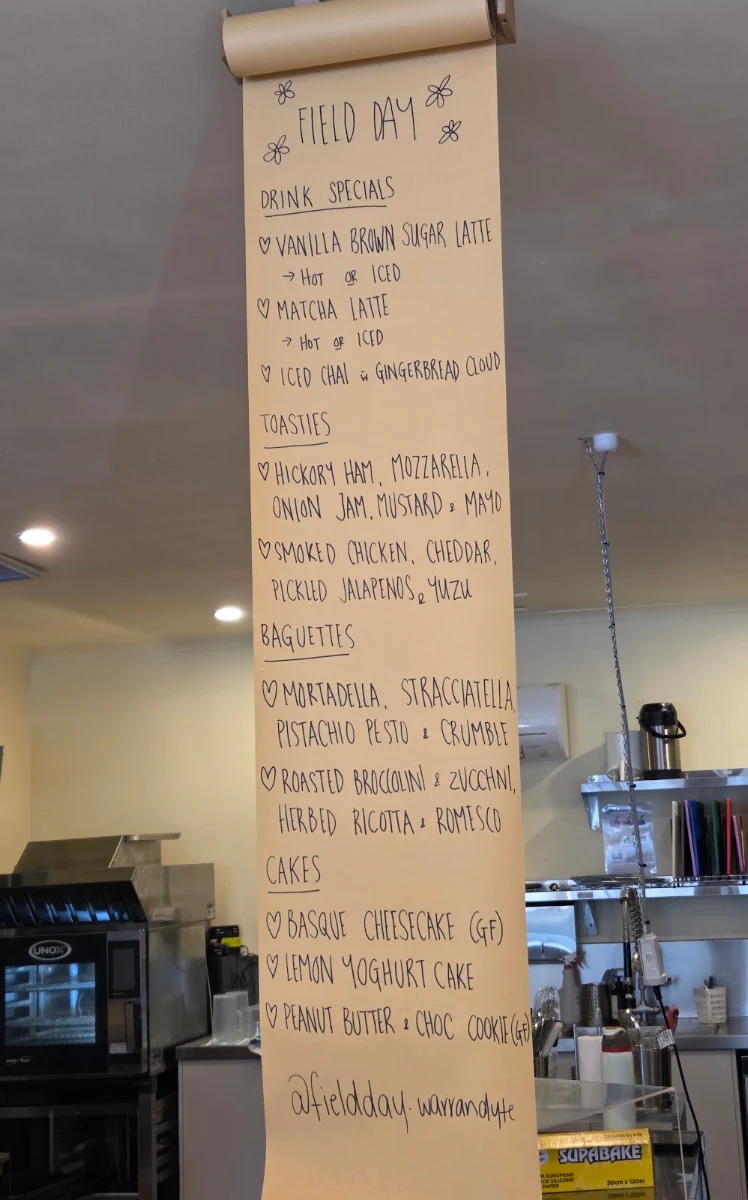 FIELD DAY
DRINK SPECIALS
♡ VANILLA BROWN SUGAR LATTE
→ HOT OR ICED
♡ MATCHA LATTE
→ HOT OR ICED
♡ ICED CHAI w GINGERBREAD CLOUD
TOASTIES
♡ HICKORY HAM, MOZZARELLA,
ONION JAM, MUSTARD & MAYO
♡ SMOKED CHICKEN, CHEDDAR,
PICKLED JALAPENOS & YUZU
BAGUETTES
♡ MORTADELLA, STRACCIATELLA,
PISTACHIO PESTO & CRUMBLE
♡ ROASTED BROCCOLINI & ZUCCHNI,
HERBED RICOTTA & ROMESCO
CAKES
♡ BASQUE CHEESECAKE (GF)
♡ LEMON YOGHURT CAKE
♡ PEANUT BUTTER & CHOC COOKIE (GF)
@fieldday.warrandyte
UNOX
SUPABAKE
30cm x 120m